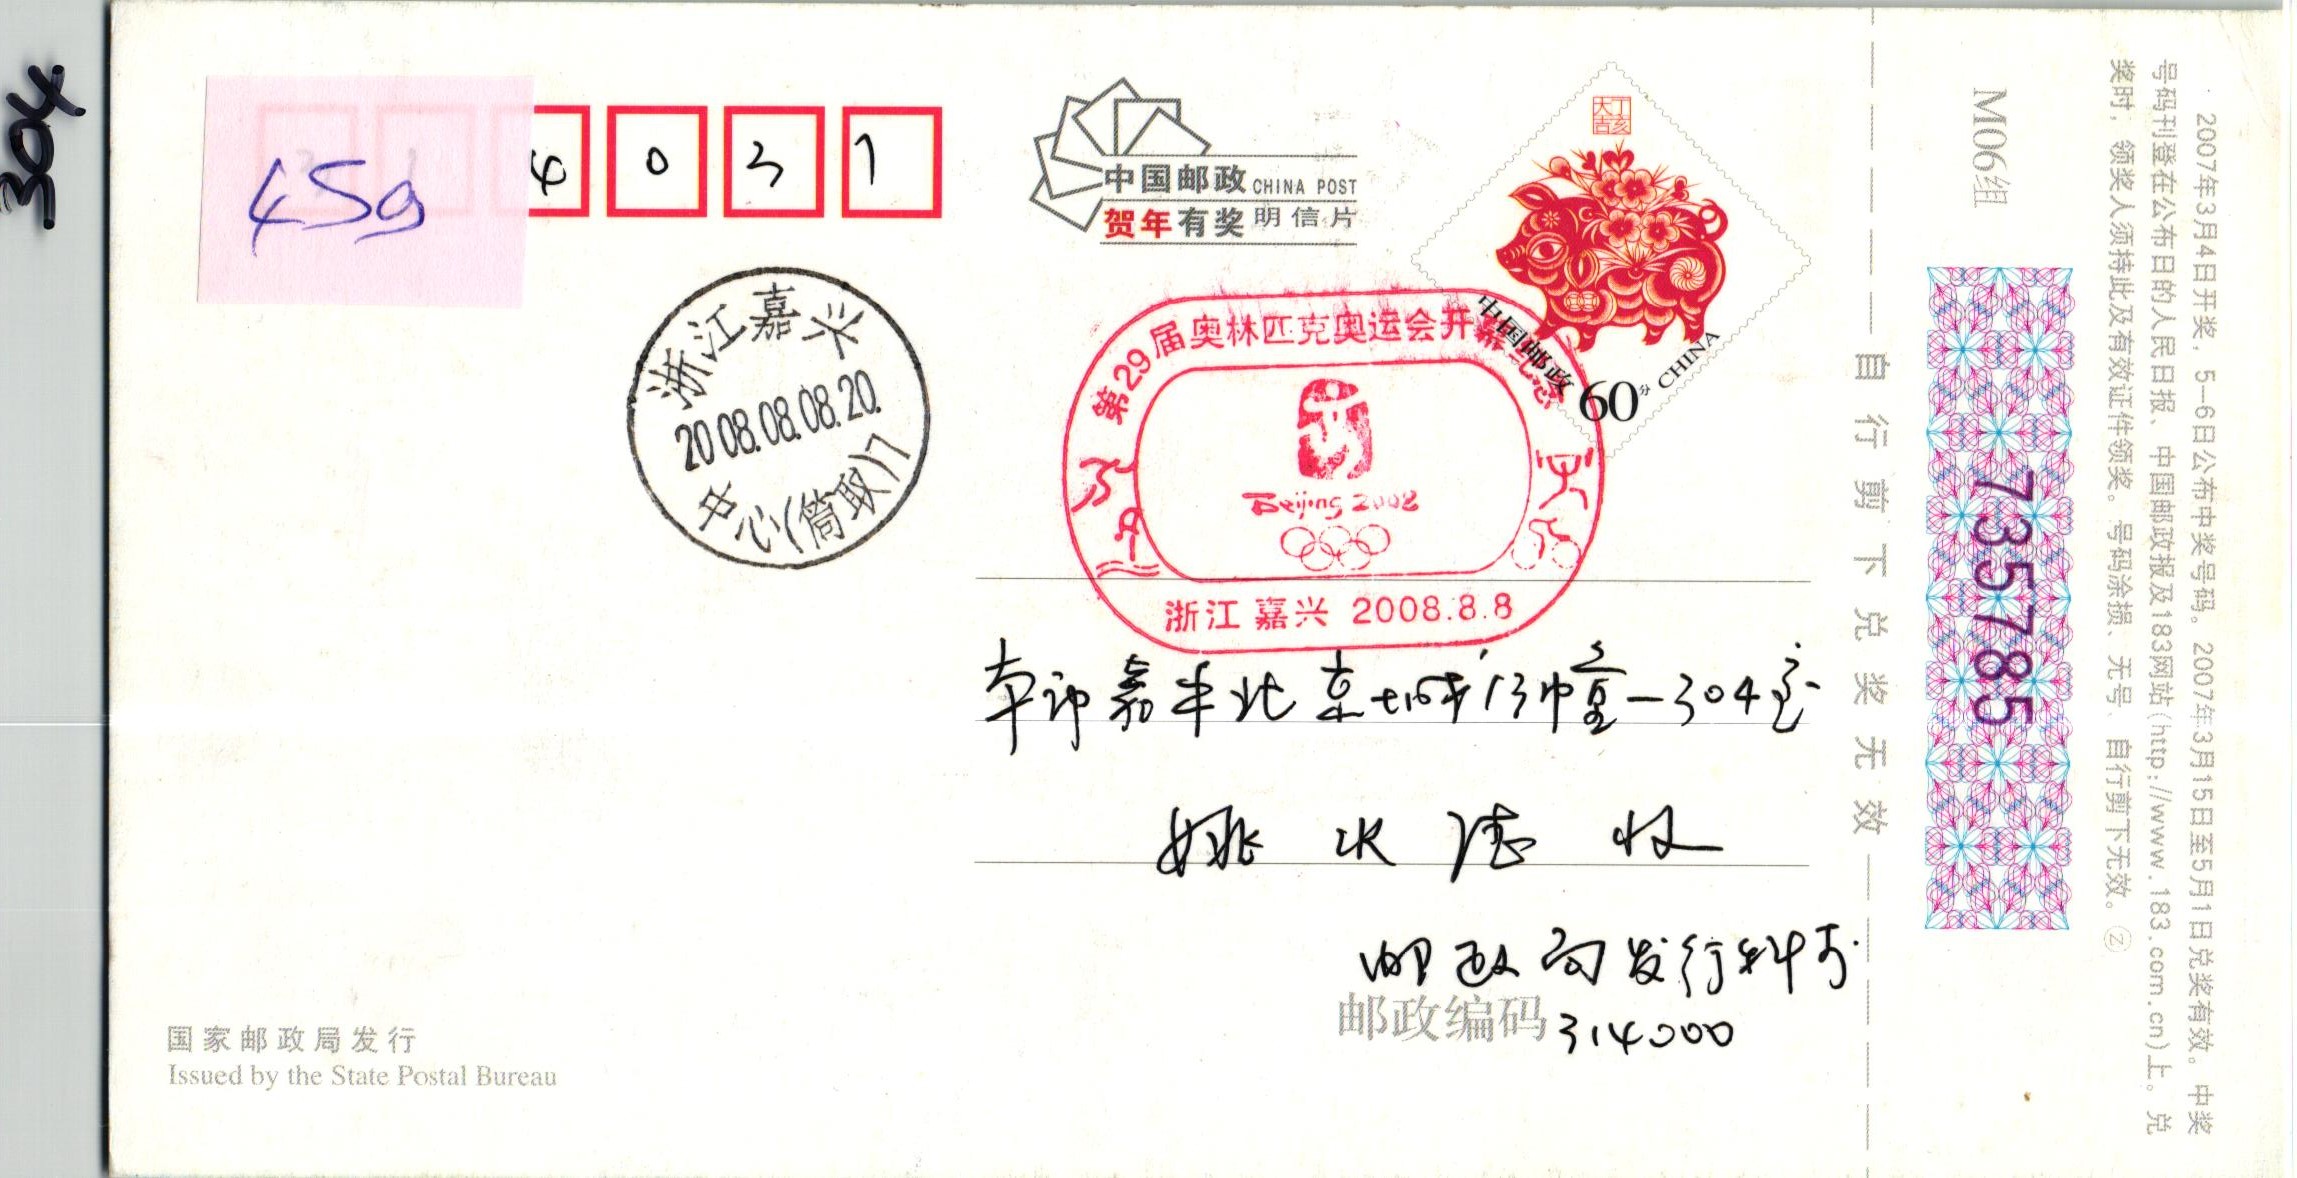 304
45g
4 0 3 1
中国邮政 CHINA POST
贺年有奖 明信片
丁亥大吉
中国邮政
60分 CHINA
浙江嘉兴
2008.08.08.20.
中心(筒取)7
第29届奥林匹克奥运会开幕纪念
Beijing 2008
浙江 嘉兴 2008.8.8
本市 嘉 北京 13幢 一304室
姚 收
邮政局发行科寄
邮政编码 314000
国家邮政局发行
Issued by the State Postal Bureau
自行剪下兑奖无效
M06组
735785
2007年3月4日开奖，5—6日公布中奖号码。2007年3月15日至5月1日兑奖有效。中奖
号码刊登在公布日的人民日报、中国邮政报及183网站(http://www.183.com.cn)上。兑
奖时，领奖人须持此及有效证件领奖。号码涂损、无号、自行剪下无效。Ⓩ